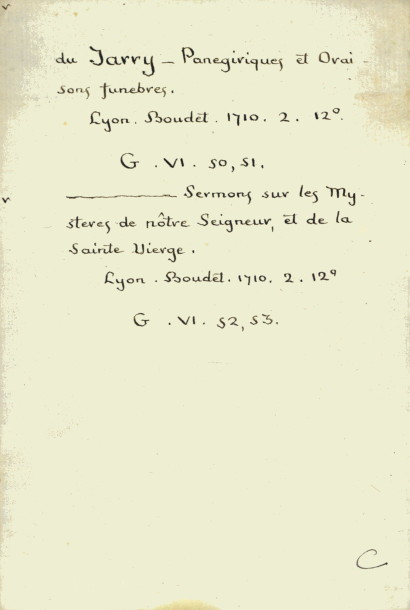 du Jarry – Panegiriques et Orai-
sons funebres.
Lyon. Boudet. 1710. 2. 12º.
G. VI. 50, 51.
——— Sermons sur les My-
steres de nôtre Seigneur, et de la
Sainte Vierge.
Lyon. Boudet. 1710. 2. 12º
G. VI. 52, 53.
C